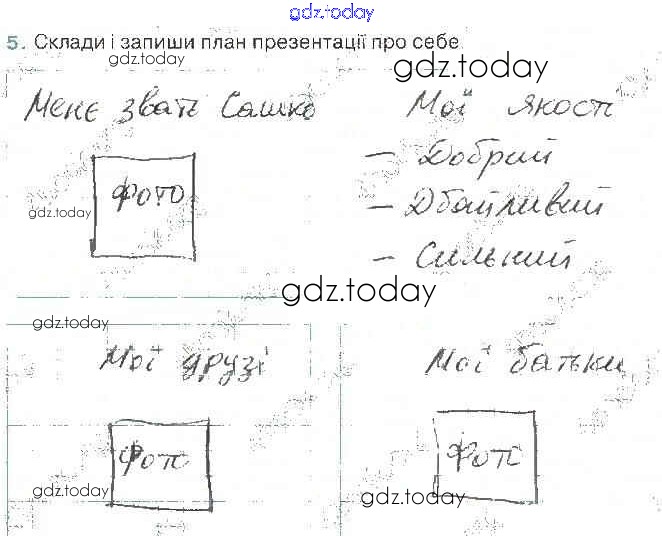 gdz.today
5. Склади і запиши план презентації про себе
gdz.today
gdz.today
Мене звать Сашко
Мої якості
фото
gdz.today
– Добрий
– Дбайливий
– Сильний
gdz.today
gdz.today
Мої друзі
Мої батьки
фото
фото
gdz.today
gdz.today